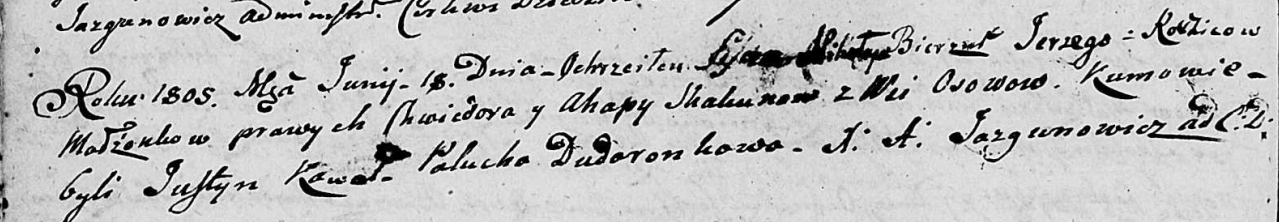 Jazgunowicz Administr. Cerkwi
Roku 1805. Mca Junij 18. Dnia Ochrzciłem Syna Bierzm Jerzego = Rodzicow
Małżonkow prawych Chwiedora y Ahapy Skakunow z Wsi Osowow. Kumowie
byli Justyn Kowal Palucha Dudaronkowa X: A: Jazgunowicz ad C: D: